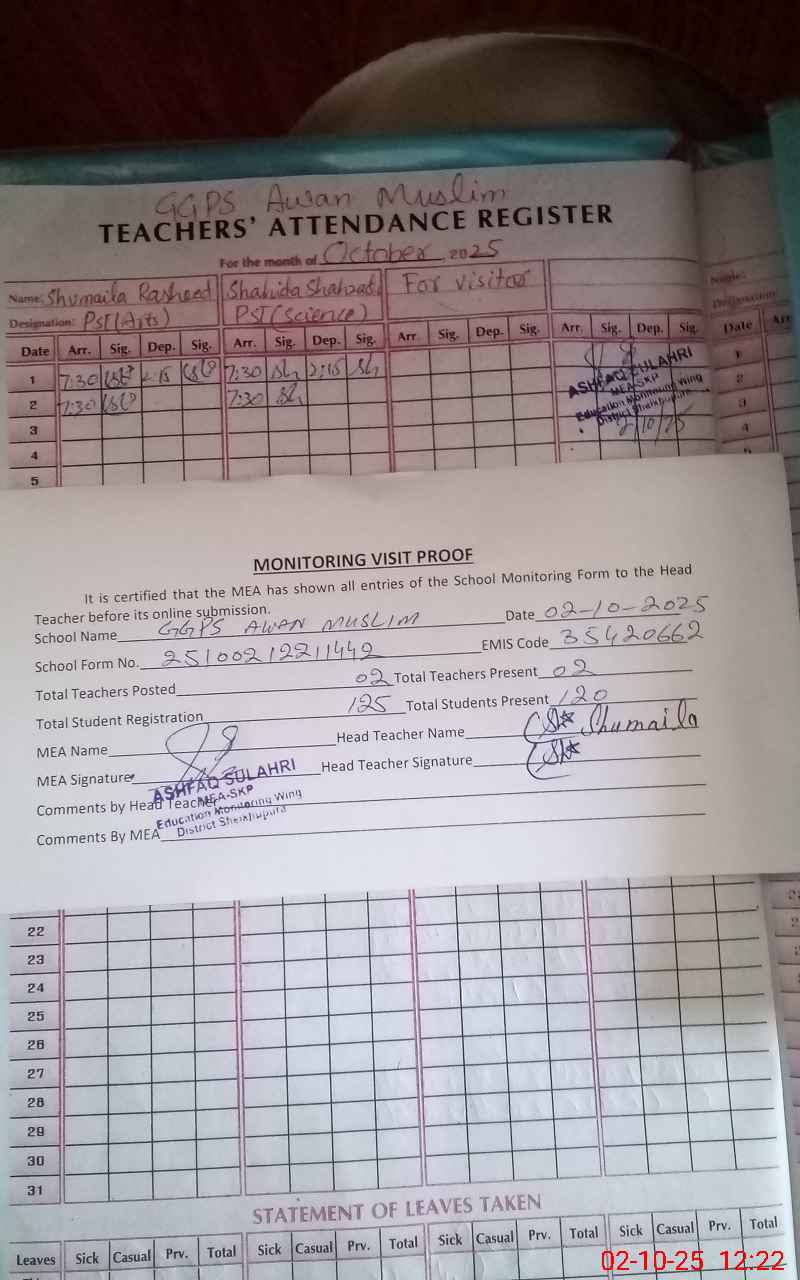 GGPS Awan Muslim
TEACHERS' ATTENDANCE REGISTER
For the month of October, 2025
Name: Shumaila Rasheed Shahida Shahzad For visitor
Designation: PST(Arts) PST(Science)
Date Arr. Sig. Dep. Sig. Arr. Sig. Dep. Sig. Arr. Sig. Dep. Sig. Arr. Sig. Dep. Sig.
1 7:30 2:15 7:30 2:15
2 7:30 7:30
3
4
5
ASHFAQ SULAHRI
MEA-SKP
Education Monitoring Wing
District Sheikhupura
2/10/25
Name:
Designation
Date Arr
1
2
3
4
MONITORING VISIT PROOF
It is certified that the MEA has shown all entries of the School Monitoring Form to the Head
Teacher before its online submission.
School Name GGPS AWAN MUSLIM Date 02-10-2025
School Form No. 25100212211442 EMIS Code 35420662
Total Teachers Posted 02 Total Teachers Present 02
Total Student Registration 125 Total Students Present 120
MEA Name Head Teacher Name Shumaila
MEA Signature Head Teacher Signature
Comments by Head Teacher
Comments By MEA
ASHFAQ SULAHRI
MEA-SKP
Education Monitoring Wing
District Sheikhupura
22
23
24
25
26
27
28
29
30
31
STATEMENT OF LEAVES TAKEN
Leaves Sick Casual Prv. Total Sick Casual Prv. Total Sick Casual Prv. Total Sick Casual Prv. Total
02-10-25 12:22